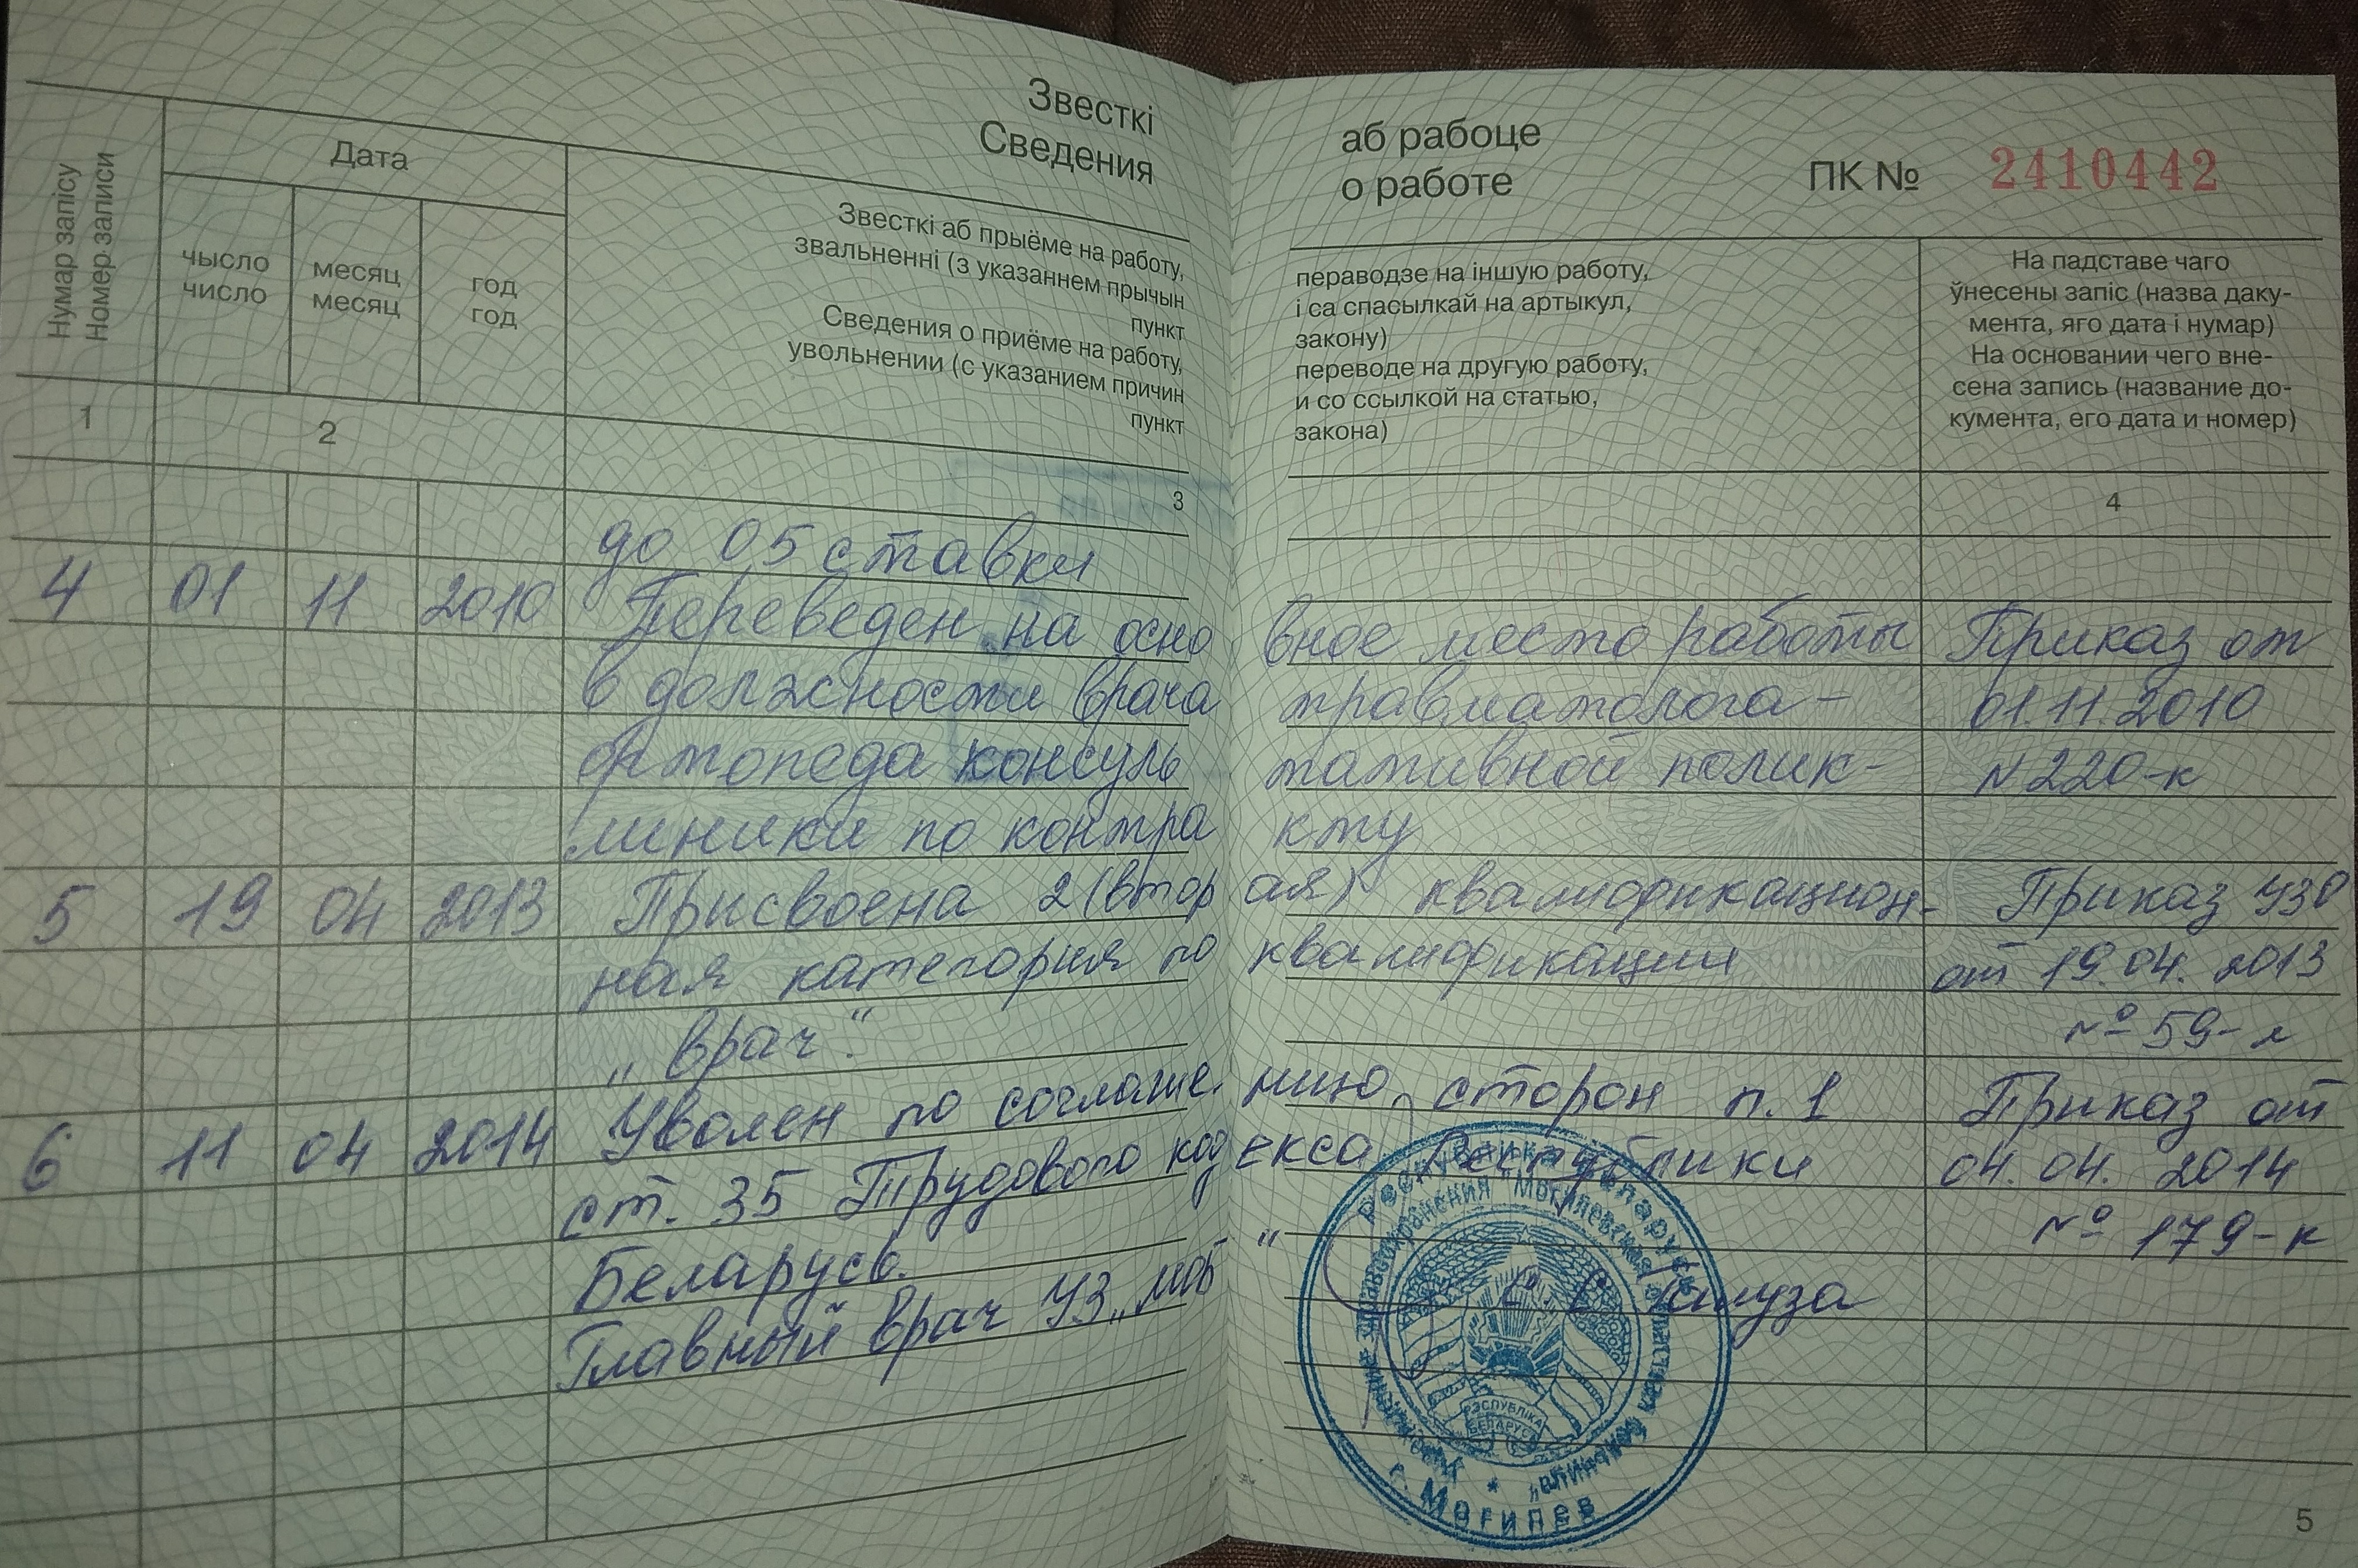 Звесткі аб рабоце
Сведения о работе
ПК № 2410442
Нумар запісу
Номер записи
Дата
чысло
число
месяц
месяц
год
год
Звесткі аб прыёме на работу, пераводзе на іншую работу,
звальненні (з указаннем прычын і са спасылкай на артыкул,
пункт закону)
Сведения о приёме на работу, переводе на другую работу,
увольнении (с указанием причин и со ссылкой на статью,
пункт закона)
На падставе чаго
ўнесены запіс (назва даку-
мента, яго дата і нумар)
На основании чего вне-
сена запись (название до-
кумента, его дата и номер)
1 2 3 4
до 05 ставки
4 01 11 2010 Переведен на осно вное место работы Приказ от
в должности врача травматолога - 01.11.2010
ортопеда консуль тативной полик- N 220-к
линики по контра кту
5 19 04 2013 Присвоена 2 (втор ая) квалификацион- Приказ УЗО
ная категория по квалификации от 19.04.2013
„врач". № 59-л
6 11 04 2014 Уволен по соглаше. нию сторон п. 1 Приказ от
ст. 35 Трудового код екса Республики 04.04.2014
Беларусь. № 179-к
Главный врач УЗ „МОБ"
Республика Беларусь
Учреждение здравоохранения "Могилевская областная больница"
г. Могилев
РЭСПУБЛІКА
БЕЛАРУСЬ
5